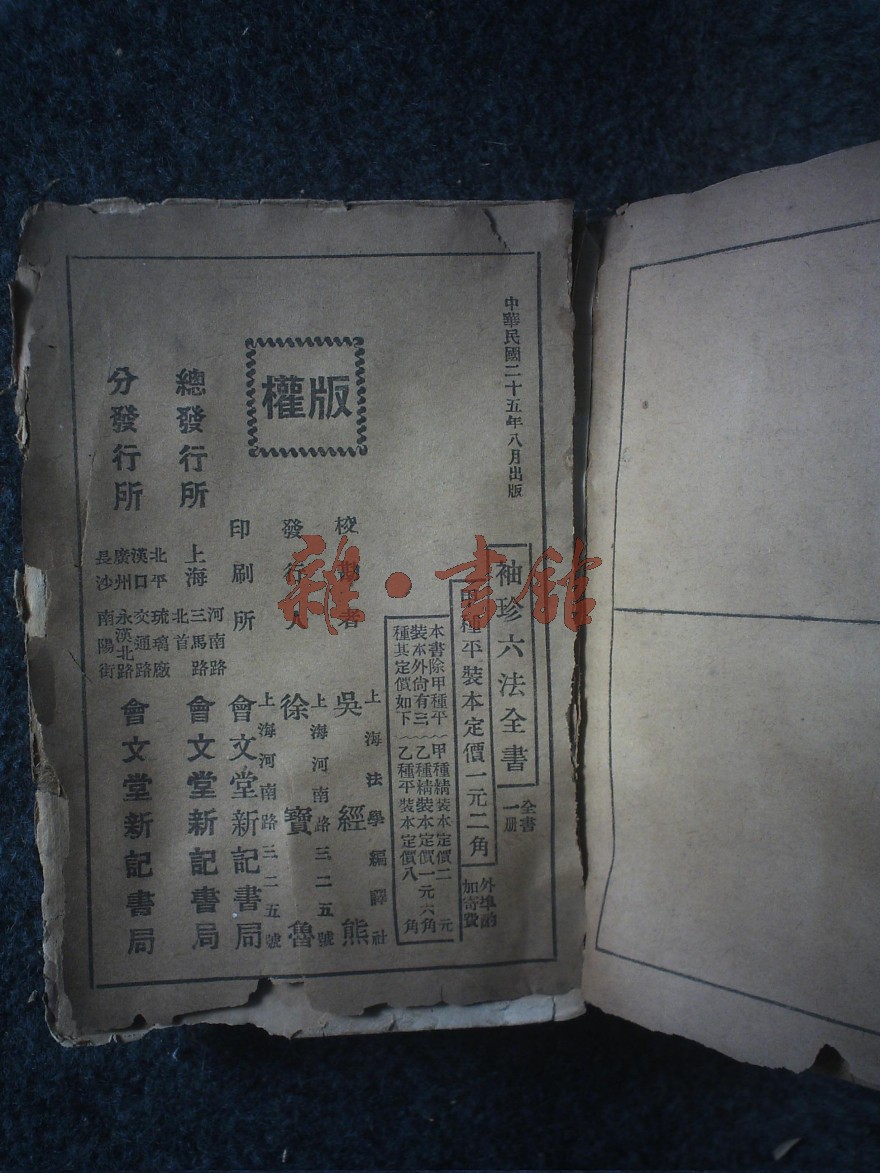 中華民國二十五年八月出版
袖珍六法全書
全書一册
甲種平裝本定價一元二角
外埠酌加寄費
本書除甲種平裝本外尙有三種其定價如下
甲種精裝本定價二元
乙種精裝本定價一元六角
乙種平裝本定價八角
版權
校勘者
上海法學編譯社
吳經熊
發行人
上海河南路三二五號
徐寶魯
印刷所
上海河南路三二五號
會文堂新記書局
總發行所
上海
河南路
三馬路
北首
會文堂新記書局
分發行所
北平琉璃廠
漢口交通路
廣州永漢北路
長沙南陽街
會文堂新記書局
雜·書館